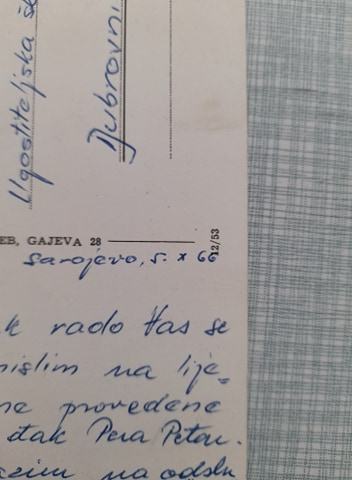 Ugostiteljska
Dubrovni
EB, GAJEVA 28
12/53
Sarajevo, 5. X 66
k rado Vas se
mislim na lije=
ne provedene
đak Pera Petar.
na odslu